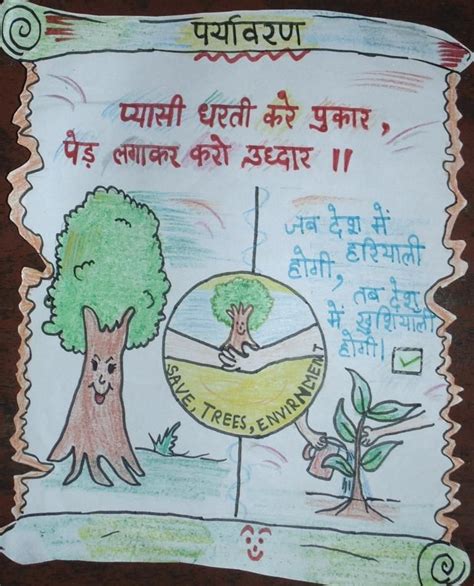 पर्यावरण
प्यासी धरती करे पुकार,
पेड़ लगाकर करो उध्दार ॥
जब देश में
हरियाली
होगी,
तब देश
में खुशियाली
होगी।
SAVE, TREES, ENVIRNMENT